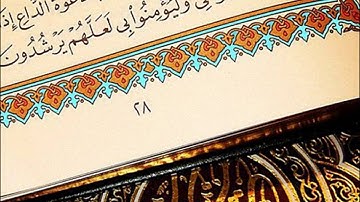 دَعْوَةَ ٱلدَّاعِ إِذَ
وَلْيُؤْمِنُوا۟ بِى لَعَلَّهُمْ يَرْشُدُونَ
٢٨